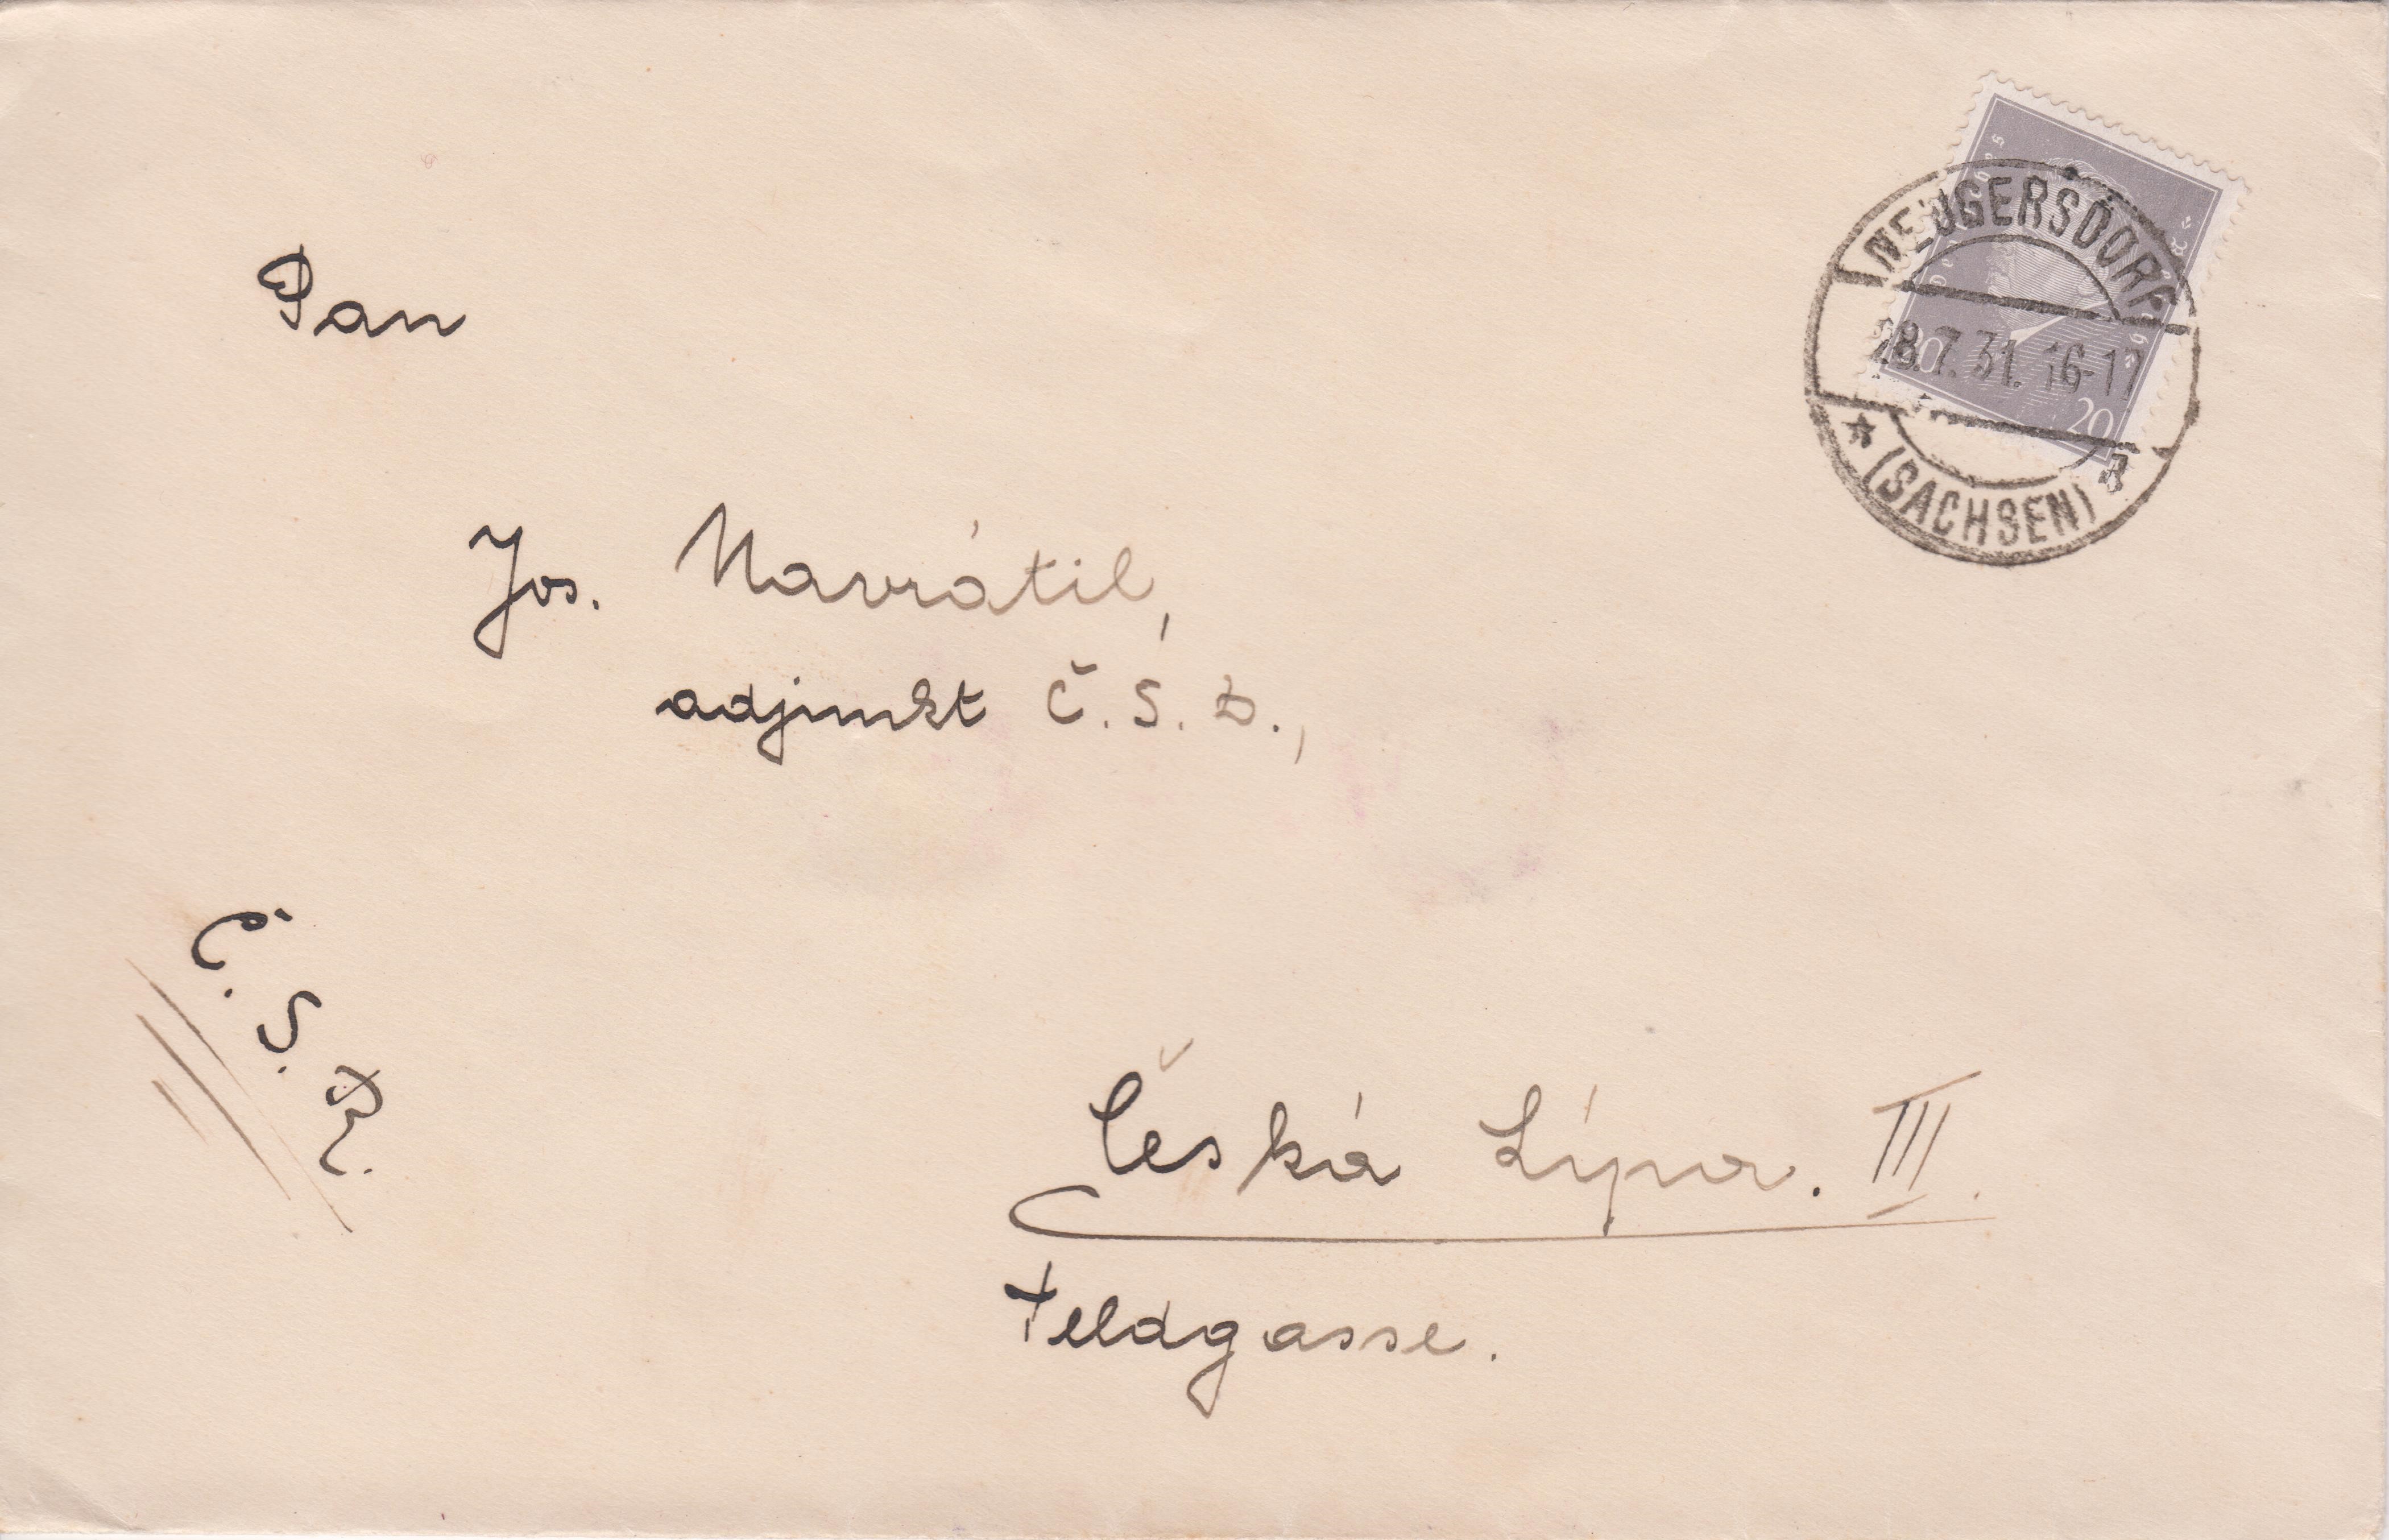 Pan
Jos. Navrátil,
adjunkt Č.S.D.,
Č.S.R.
Česká Lípa. III.
Feldgasse.
NEUGERSDORF
28.7.31. 16-17
* (SACHSEN)
20